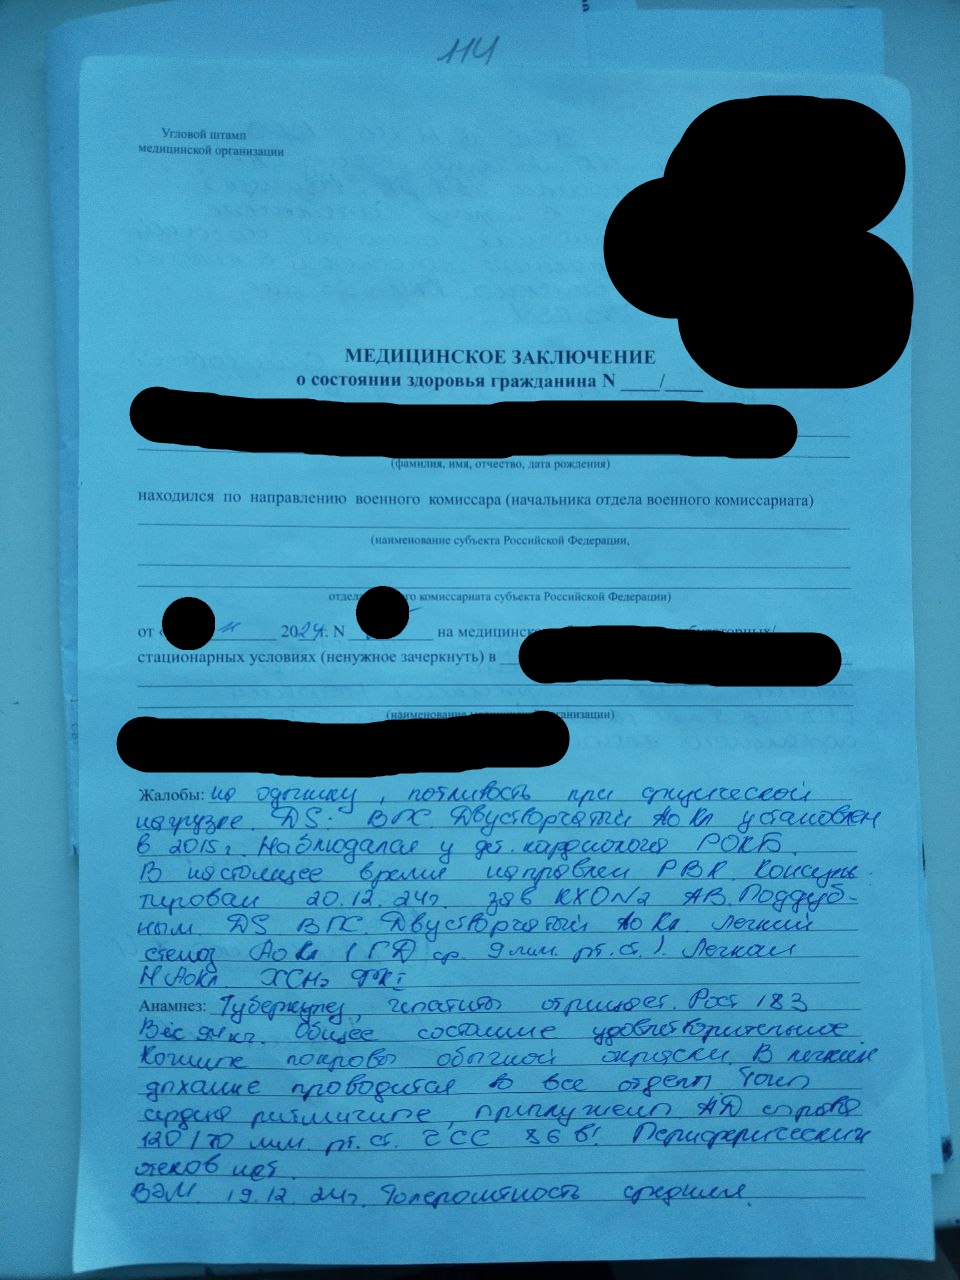 114
Угловой штамп
медицинской организации
МЕДИЦИНСКОЕ ЗАКЛЮЧЕНИЕ
о состоянии здоровья гражданина N ____/____
(фамилия, имя, отчество, дата рождения)
находился по направлению военного комиссара (начальника отдела военного комиссариата)
(наименование субъекта Российской Федерации,
отдела комиссариата субъекта Российской Федерации)
от « 11 2024г. N на медицинское
стационарных условиях (ненужное зачеркнуть) в
(наименование организации)
Жалобы: на одышку, потливость при физической
нагрузке. DS: ВПС. Двустворчатый АоКл установлен
в 2015г. Наблюдался у дет. кардиолога РОКБ.
В настоящее время направлен РВК. Консуль-
тирован 20.12.24г. зав КХО№2 А.В. Поддуб-
ным. DS ВПС. Двустворчатый АоКл. Легкий
стеноз АоКл (ГД ср. 9 мм. рт. ст.). Легкая
НАоКл. ХСН ФК I
Анамнез: Туберкулез, гепатиты отрицает. Рост 183
Вес кг. Общее состояние удовлетворительное
Кожные покровы обычной окраски. В легких
дыхание проводится в все отделы. Тоны
сердца ритмичные, приглушены АД справа
120/70 мм. рт. ст. ЧСС 86 в'. Периферических
отеков нет.
ВЭМ. 19.12.24г. Толерантность средняя.